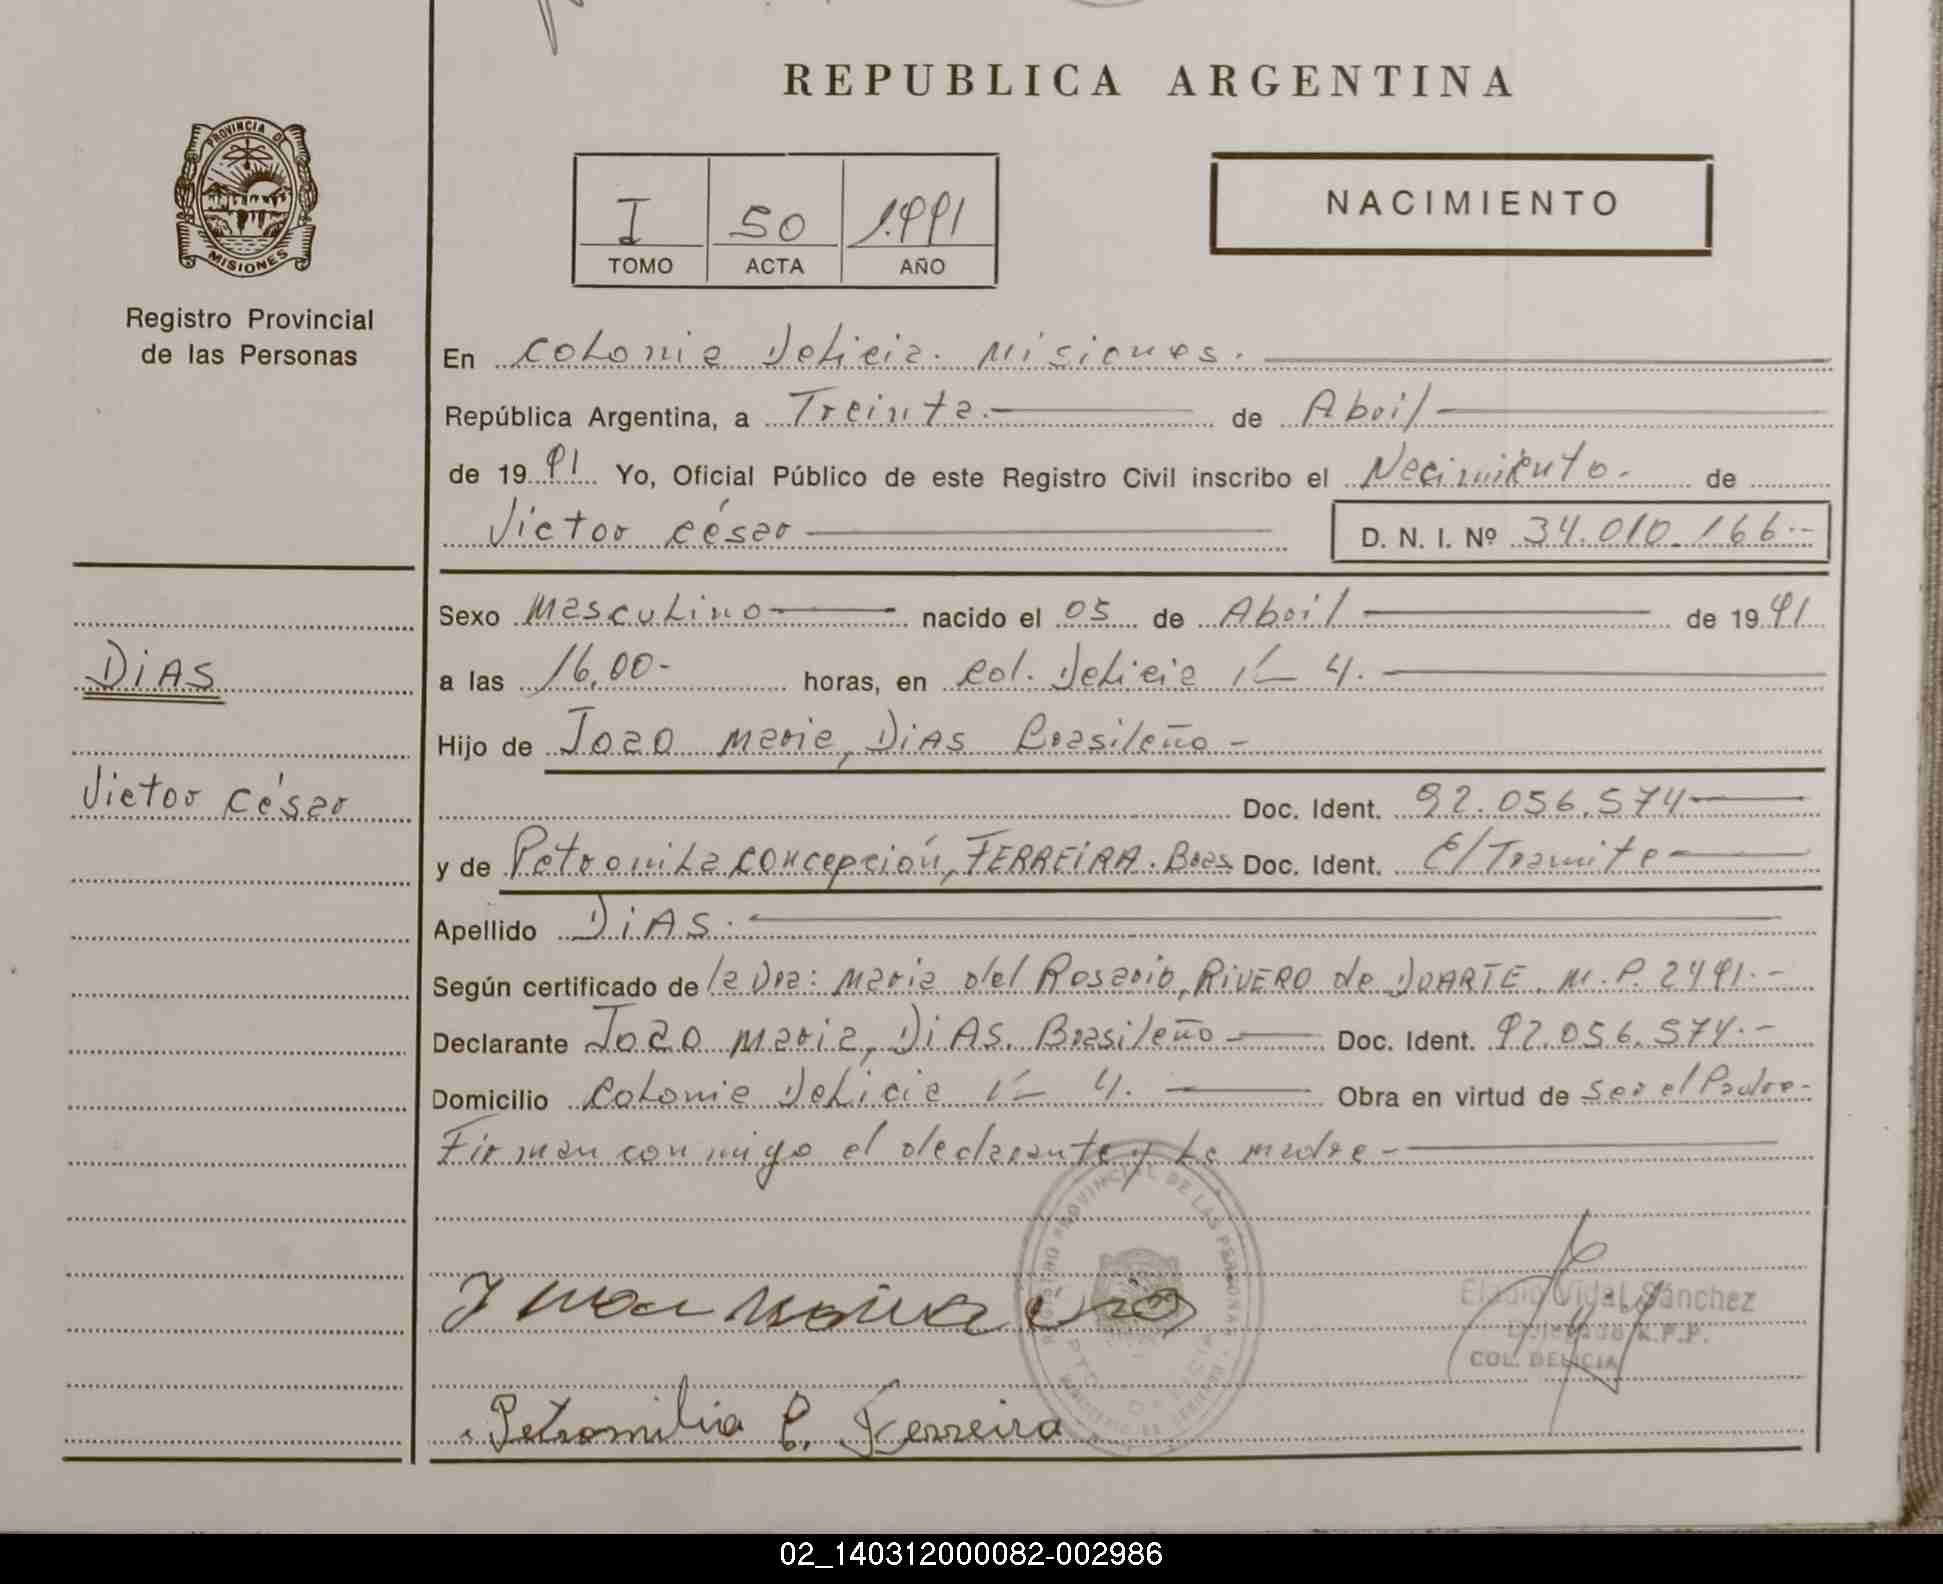 REPUBLICA ARGENTINA
PROVINCIA DE
MISIONES
Registro Provincial
de las Personas
I 50 1.991
TOMO ACTA AÑO
NACIMIENTO
En Colonia Delicia. Misiones.
República Argentina, a Treinta. de Abril
de 19 91 Yo, Oficial Público de este Registro Civil inscribo el Nacimiento- de
Victor César D. N. I. Nº 34.010.166.-
Sexo Masculino nacido el 05 de Abril de 19 91
DiAS
a las 16,00- horas, en Col. Delicia K 4.
Hijo de Joao Maria, DiAS Brasileño -
Victor César
Doc. Ident. 92.056.574
y de Petronila Concepción, FERREiRA. Bras Doc. Ident. E/Tramite
Apellido DiAS.
Según certificado de la Dra: Maria del Rosario, RiVERO de DUARTE. M.P. 2491.-
Declarante Joao Maria, DiAS. Brasileño Doc. Ident. 92.056.574.-
Domicilio Colonia Delicia K 4. Obra en virtud de Ser el Padre-
Firman conmigo el declarante y La madre-
REGISTRO PROVINCIAL DE LAS PERSONAS
Eladio Vidal Sánchez
COL. DELICIA
Petromilia C. Ferreira
02_140312000082-002986